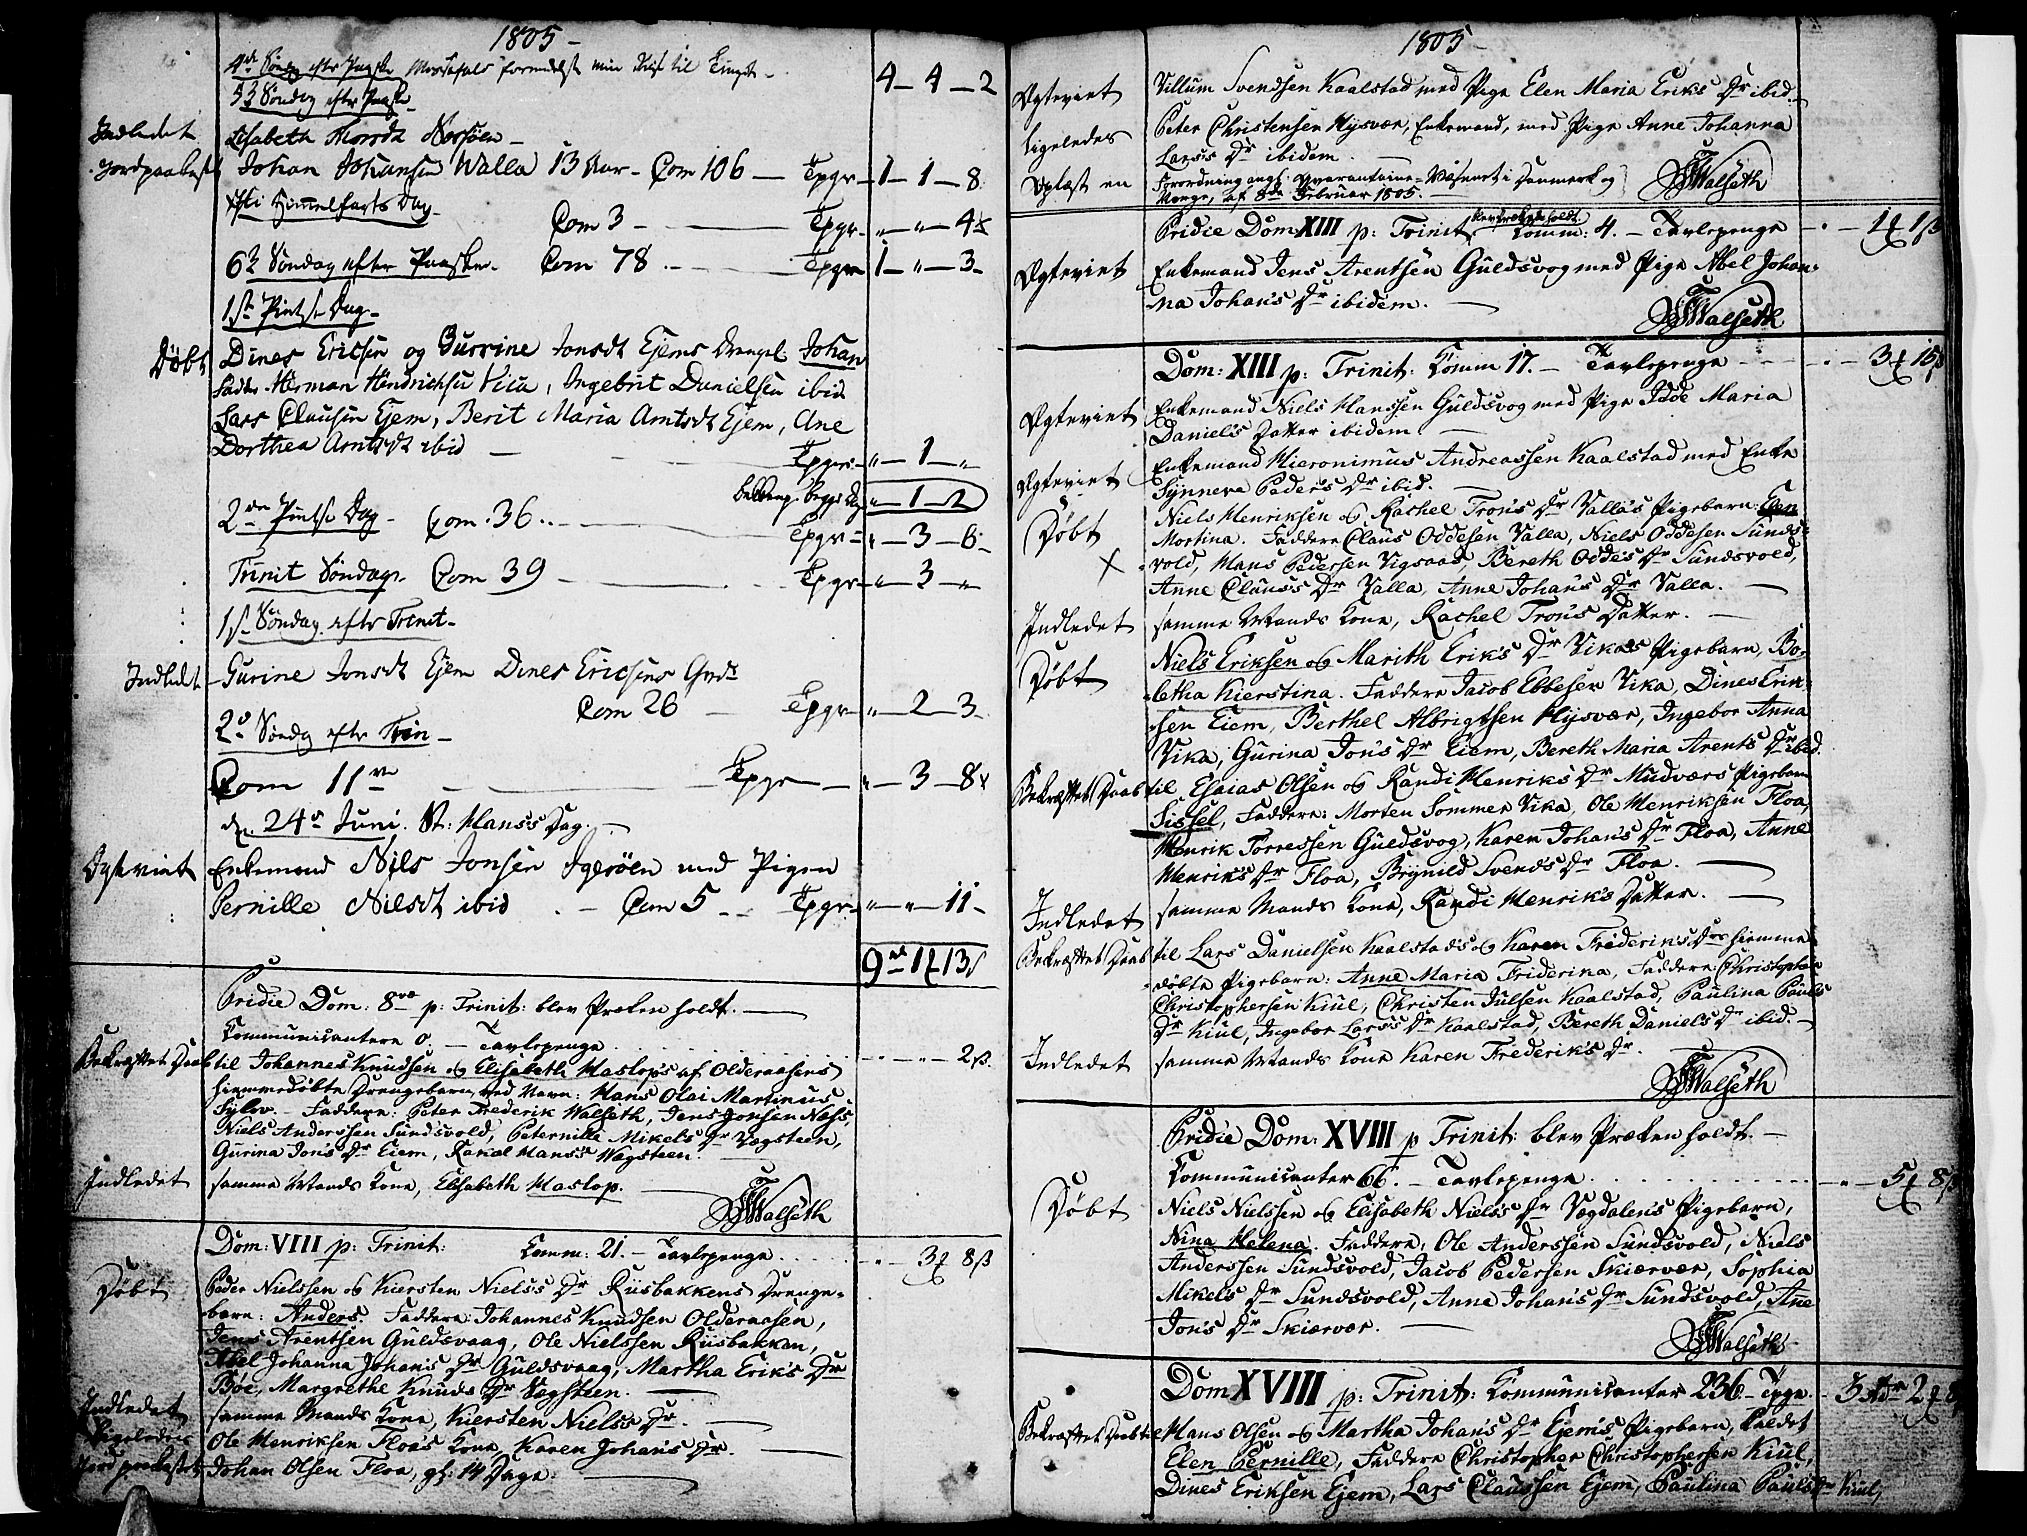 1805
4de Søndag efter Paaske Messefald formedelst min Reise til Tinget
4 – 4 – 2
5te Søndag efter Paaske
Indledet Elisabeth Norsöen
Jordpaakastet Johan Johansen Walla 13 Aar – Com 106 – Tpgr – 1 – 1 – 8
Xsti Himmelfarts Dag
Com 3 – Tpgr – " – " – 4
6te Søndag efter Paaske. Com 78. – Tpgr – 1 – " – 3
1ste Pintse Dag
Døbt Dines Ericsen og Gurrine Jonsdt Ejems Drengeb. Johan
Fadd. Herman Hindrichsen Vica, Ingebrit Danielsen ibid
Lars Clausen Ejem, Berit Maria Arntsdt Ejem, Ane
Dorthea Arntsdt ibid
Tpgr – " – 1 – "
" – 1 – 2
2den Pintse Dag – Com. 36. – Tpgr – " – 3 – 6
Trinit Søndag. Com 39 – Tpgr – " – 3 – "
1ste Søndag efter Trinit
Indledet Gurine Jonsdt Ejem Dines Ericsens
Com 26 – Tpgr – " – 2 – 3
2den Søndag efter Trin
Com 11 – Tpgr – " – 3 – 8
den 24de Juni. St: Hans's Dag.
Ægteviet Enkemand Niels Jonsen Igeröen med Pigen
Pernille Nilsdt ibid – Com 5 – Tpgr – " – " – 11
9 rd 1 ₰ 13 s
Pridie Dom: 8va p: Trinit: blev Præken holdt.
Kommunicantere 0. – Tavlepenge – 2 ß.
Bekræftet Daab til Johannes Knudsen og Elisabeth Haslops af Olderaasens
hiemmedøbte Drengebarn, ved Navn: Hans Olai Martinus
Sylov. – Faddere: Peter Frederik Walseth, Jens Jonsen Næss,
Niels Anderssen Sundsvold, Peternille Mikels Dr Vægsteen,
Gurina Jons Dr Eiem, Rakal Hans's Wægsteen.
Indledet samme Mands Kone, Elisabeth Haslop.
Walseth
Dom: VIII p: Trinit: Komm: 21. – Tavlepenge – 3 ₰ 8 ß
Døbt Peder Nielssen og Kiersten Niels's Dr Riisbakkens Drenge-
barn: Anders. Faddere: Johannes Knudsen Olderaasen,
Jens Arentsen Guldsvaag, Ole Nielssen Riisbakken,
Abel Johanna Johans Dr Guldsvaag, Martha Eriks Dr
Böe, Margrethe Knuds Dr Vægsteen.
Indledet samme Mands Kone, Kiersten Niels's Dr.
Ligeledes Ole Henriksen Floa's Kone, Karen Johans Dr.
Jordpaakastet Johan Olsen Floa, gl: 14 Dage.
1805
Ægteviet Villum Svendsen Kaalstad med Pige Elen Maria Eriks Dr ibid.
ligeledes Peter Christensen Hysvær, Enkemand, med Pige Anne Johanna
Lars's Dr ibidem.
Oplæst en Forordning angl. Qvarantaine-Væsenet i Danmark og
Norge, af 8de Februar 1805.
Walseth
Pridie Dom XIII p: Trinit, blev Præken holdt. Komm: 4. – Tavlepenge – 1 ₰ 1 ß
Ægteviet Enkemand Jens Arentsen Guldsvog med Pige Abel Johan-
na Johans Dr ibidem.
Walseth
Dom: XIII p: Trinit: Komm 17. – Tavlepenge – 3 ₰ 15 ß
Ægteviet Enkemand Niels Hanssen Guldsvog med Pige Idde Maria
Daniels Datter ibidem.
Ægteviet Enkemand Hieronimus Andreassen Kaalstad med Enke
Synneve Peders Dr ibid.
Døbt Niels Henriksen og Rachel Trons Dr Valla's Pigebarn: Elen
Martina. Faddere Claus Oddesen Valla, Niels Oddesen Sunds-
vold, Hans Pedersen Vigsaas, Bereth Oddes Dr Sundsvold,
Anne Claus's Dr Valla, Anne Johans Dr Valla.
Indledet samme Mands Kone, Rachel Trons Datter.
Døbt Niels Eriksen og Marith Eriks Dr Vikas Pigebarn, Bo-
letha Kierstina. Faddere Jacob Ebbesen Vika, Dines Erik-
sen Eiem, Berthel Albrigtsen Hysvær, Ingebor Anna
Vika, Gurina Jons Dr Eiem, Bereth Maria Arents Dr ibid.
Bekræftet Daab til Esaias Olsen og Randi Henriks Dr Mudværs Pigebarn
Sissel, Faddere: Morten Sommer Vika, Ole Henriksen Floa,
Henrik Torressen Guldsvog, Karen Johans Dr Floa, Anne
Henriks Dr Floa, Brynild Svends Dr Floa.
Indledet samme Mands Kone, Randi Henriks Datter.
Bekræftet Daab til Lars Danielsen Kaalstads og Karen Frideriks Drs hiemme
døbte Pigebarn: Anne Maria Friderina, Faddere: Christopher
Christophersen Kiul, Christen Julsen Kaalstad, Paulina Pauls
Dr Kiul, Ingebor Lars's Dr Kaalstad, Bereth Daniels Dr ibid.
Indledet samme Mands Kone Karen Frederiks Dr.
Walseth
Pridie Dom: XVIII p Trinit: blev Præken holdt.
Kommunicanter 66. – Tavlepenge – 5 ₰ 8 ß
Døbt Niels Nielssen og Elisabeth Niels's Dr Vægdalens Pigebarn,
Nina Helena. Faddere, Ole Anderssen Sundsvold, Niels
Anderssen Sundsvold, Jacob Pedersen Skiærvær, Sophia
Mikels Dr Sundsvold, Anne Johans Dr Sundsvold, Ane
Jons Dr Skiærvær.
Walseth
Dom XVIII p: Trinit: Kommunicanter 236. – Tpge. – 3 Rdr 2 ₰ 8
Bekræftet Daab til Hans Olsen og Martha Johans Dr Ejems Pigebarn, kaldet
Elen Pernille, Faddere Christopher Christophersen Kiul,
Dines Eriksen Ejem, Lars Claussen Ejem, Paulina Pauls Dr Kiul,